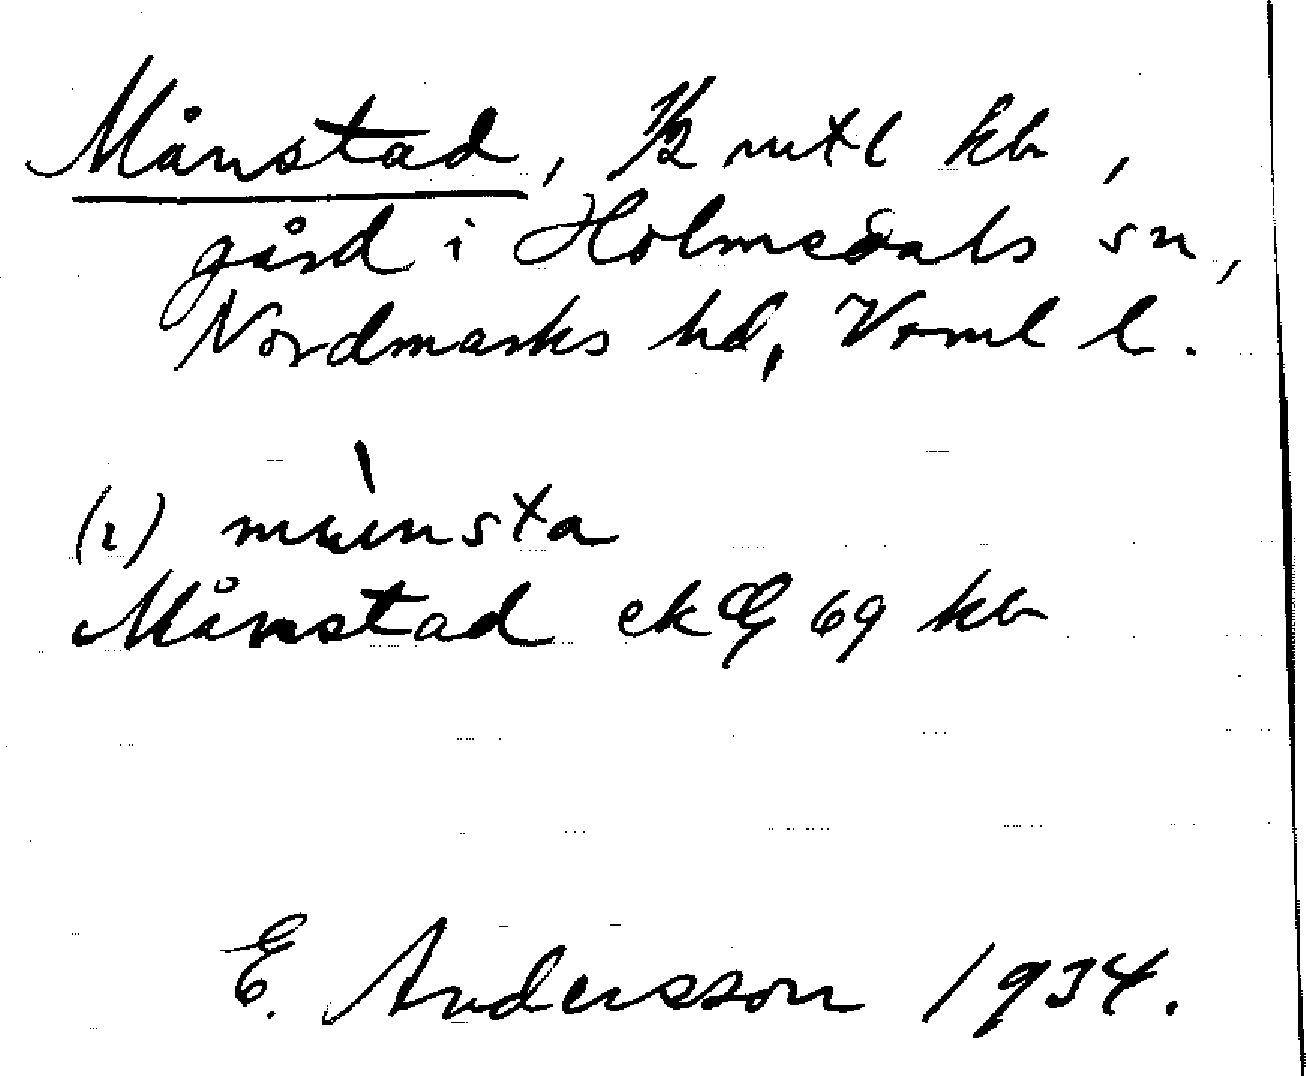 Månstad, 1/2 mtl kb,
gård i Holmedals sn,
Nordmarks hd, Vrml l.
(i) månsta
Månstad ek 69 kb
E. Andersson 1934.